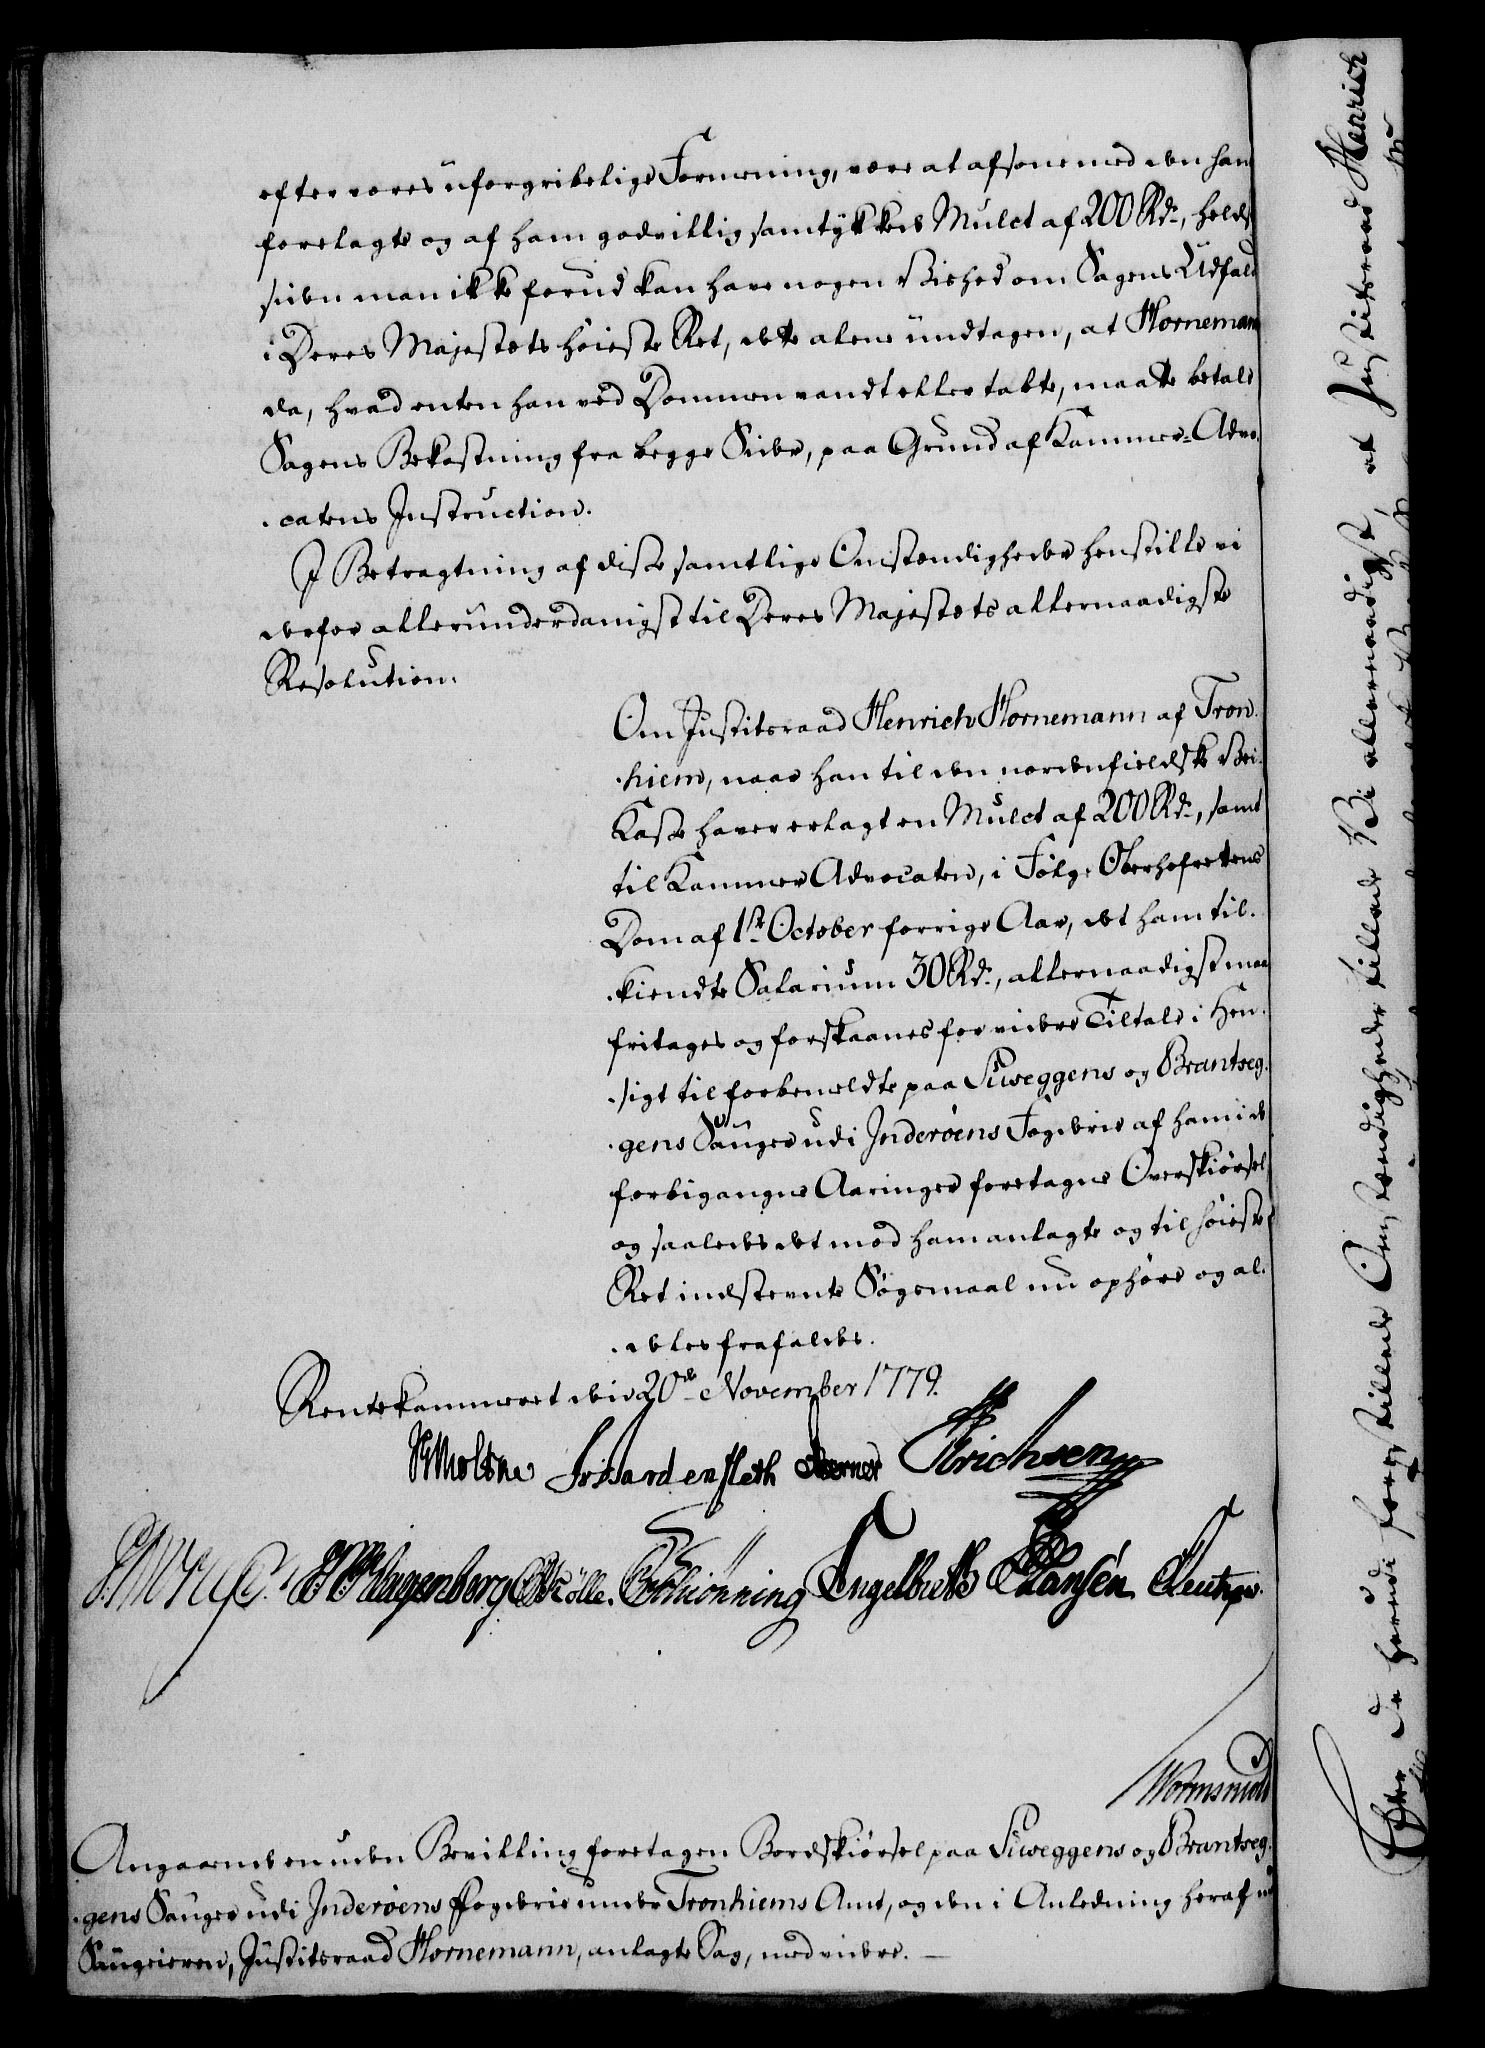 efter vores uforgribelige Formening, være at afsone med den ham
forelagte og af ham godvillig samtykkede Mulct af 200 Rd., helst
siden man ikke forud kan have nogen Vished om Sagens Udfald
i Deres Majestæts høieste Ret, dette alene undtagen, at Hornemann
da, hvad enten han ved Dommen vandt eller tabte, maatte betale
Sagens Bekostning fra begge Sider, paa Grund af Kammer-Advo-
catens Instruction.
I Betragtning af disse samtlige Omstændigheder henstille vi
derfor allerunderdanigst til Deres Majestæts allernaadigste
Resolution.
Om Justitsraad Henrich Hornemann af Tron-
hiem, naar han til den nordenfieldske Vei-
Kasse haver erlagt en Mulct af 200 Rd., samt
til Kammer Advocaten, i Følge Oberhofrettens
Dom af 1ste October forrige Aar, det ham til-
kiendte Salarium 30 Rd., allernaadigst maa
fritages og forskaanes for videre Tiltale i Hen-
sigt til forbemeldte paa Siweggens og Brantseg-
gens Sauger udi Inderøens Fogderie af ham i de
forbigangne Aaringer foretagne Overskiørsel
og saaledes det mod ham anlagte og til høieste
Ret indstevnte Søgsmaal nu ophøre og al-
deles frafaldes.
Rentekammeret den 20de November 1779.
Moltke Wardenfleth Berner Erichsen
Klagenborg Mølle Schiønning Engelbreth Hansen
Wormskiold
Angaaende en uden Bevilling foretagen Bordskiørsel paa Siweggens og Brantseg-
gens Sauger udi Inderøens Fogderie under Tronhiems Amt, og den i Anledning heraf mod
Saugeieren, Justitsraad Hornemann, anlagte Sag, med videre.
Efter de herudi forestillede Omstændigheder tillade Vi allernaadigst, at Justitsraad Henrich